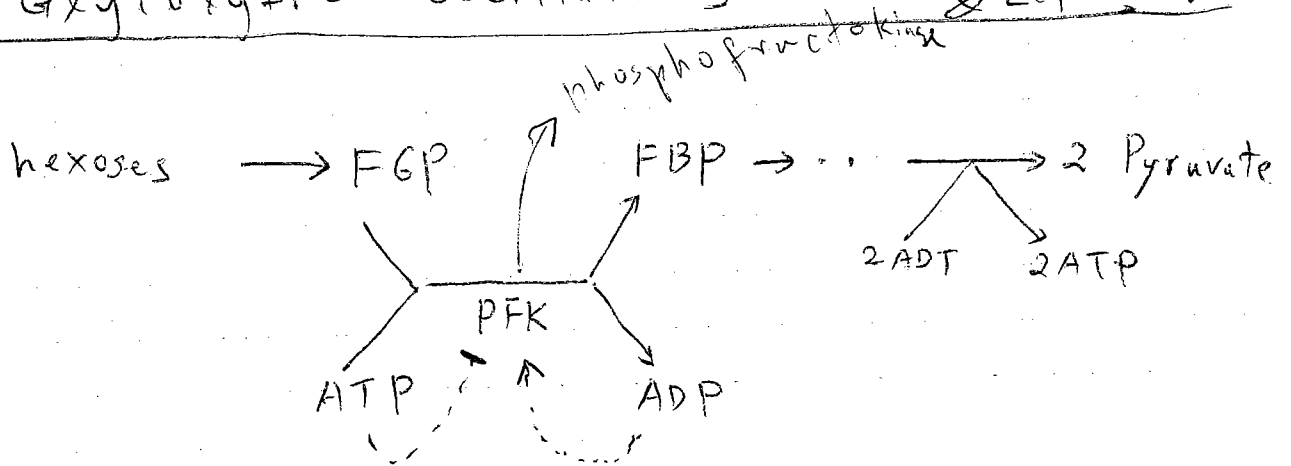 phosphofructokinase
hexoses → F6P FBP → ·· → 2 Pyruvate
2ADT 2ATP
PFK
ATP ADP